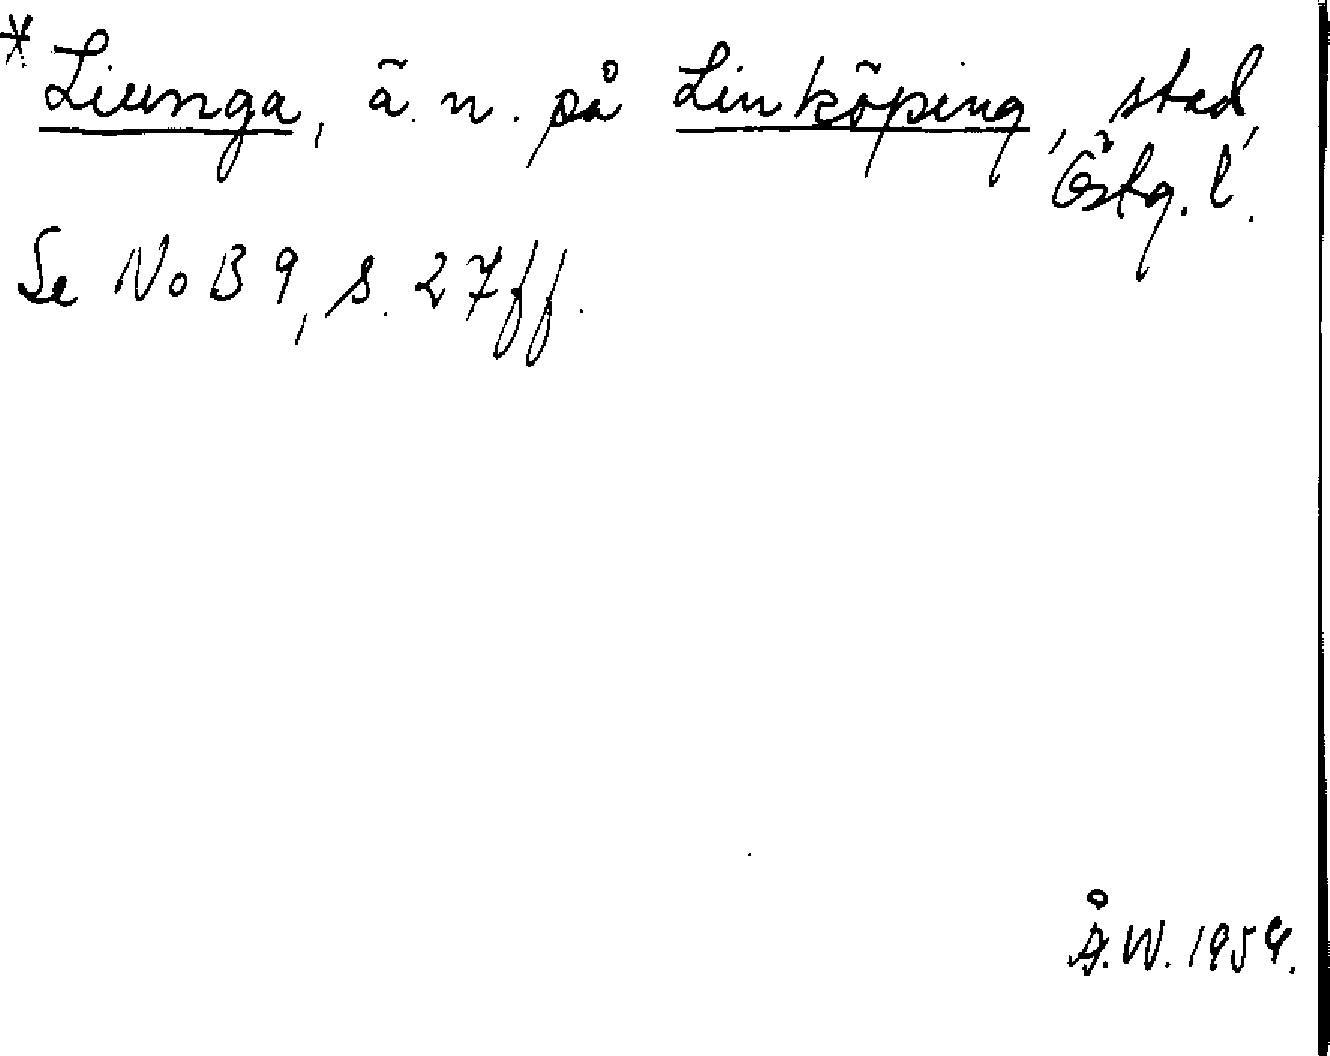 * Liunga, ä. n. på Linköping, stad,
Östg. l.
Se NoB 9, s. 27 ff.
Å. W. 1954.